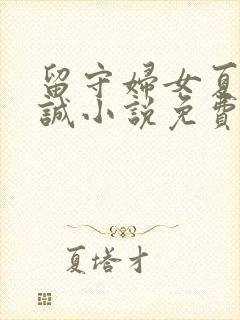 留守婦女夏
誠小説免費
夏塔才